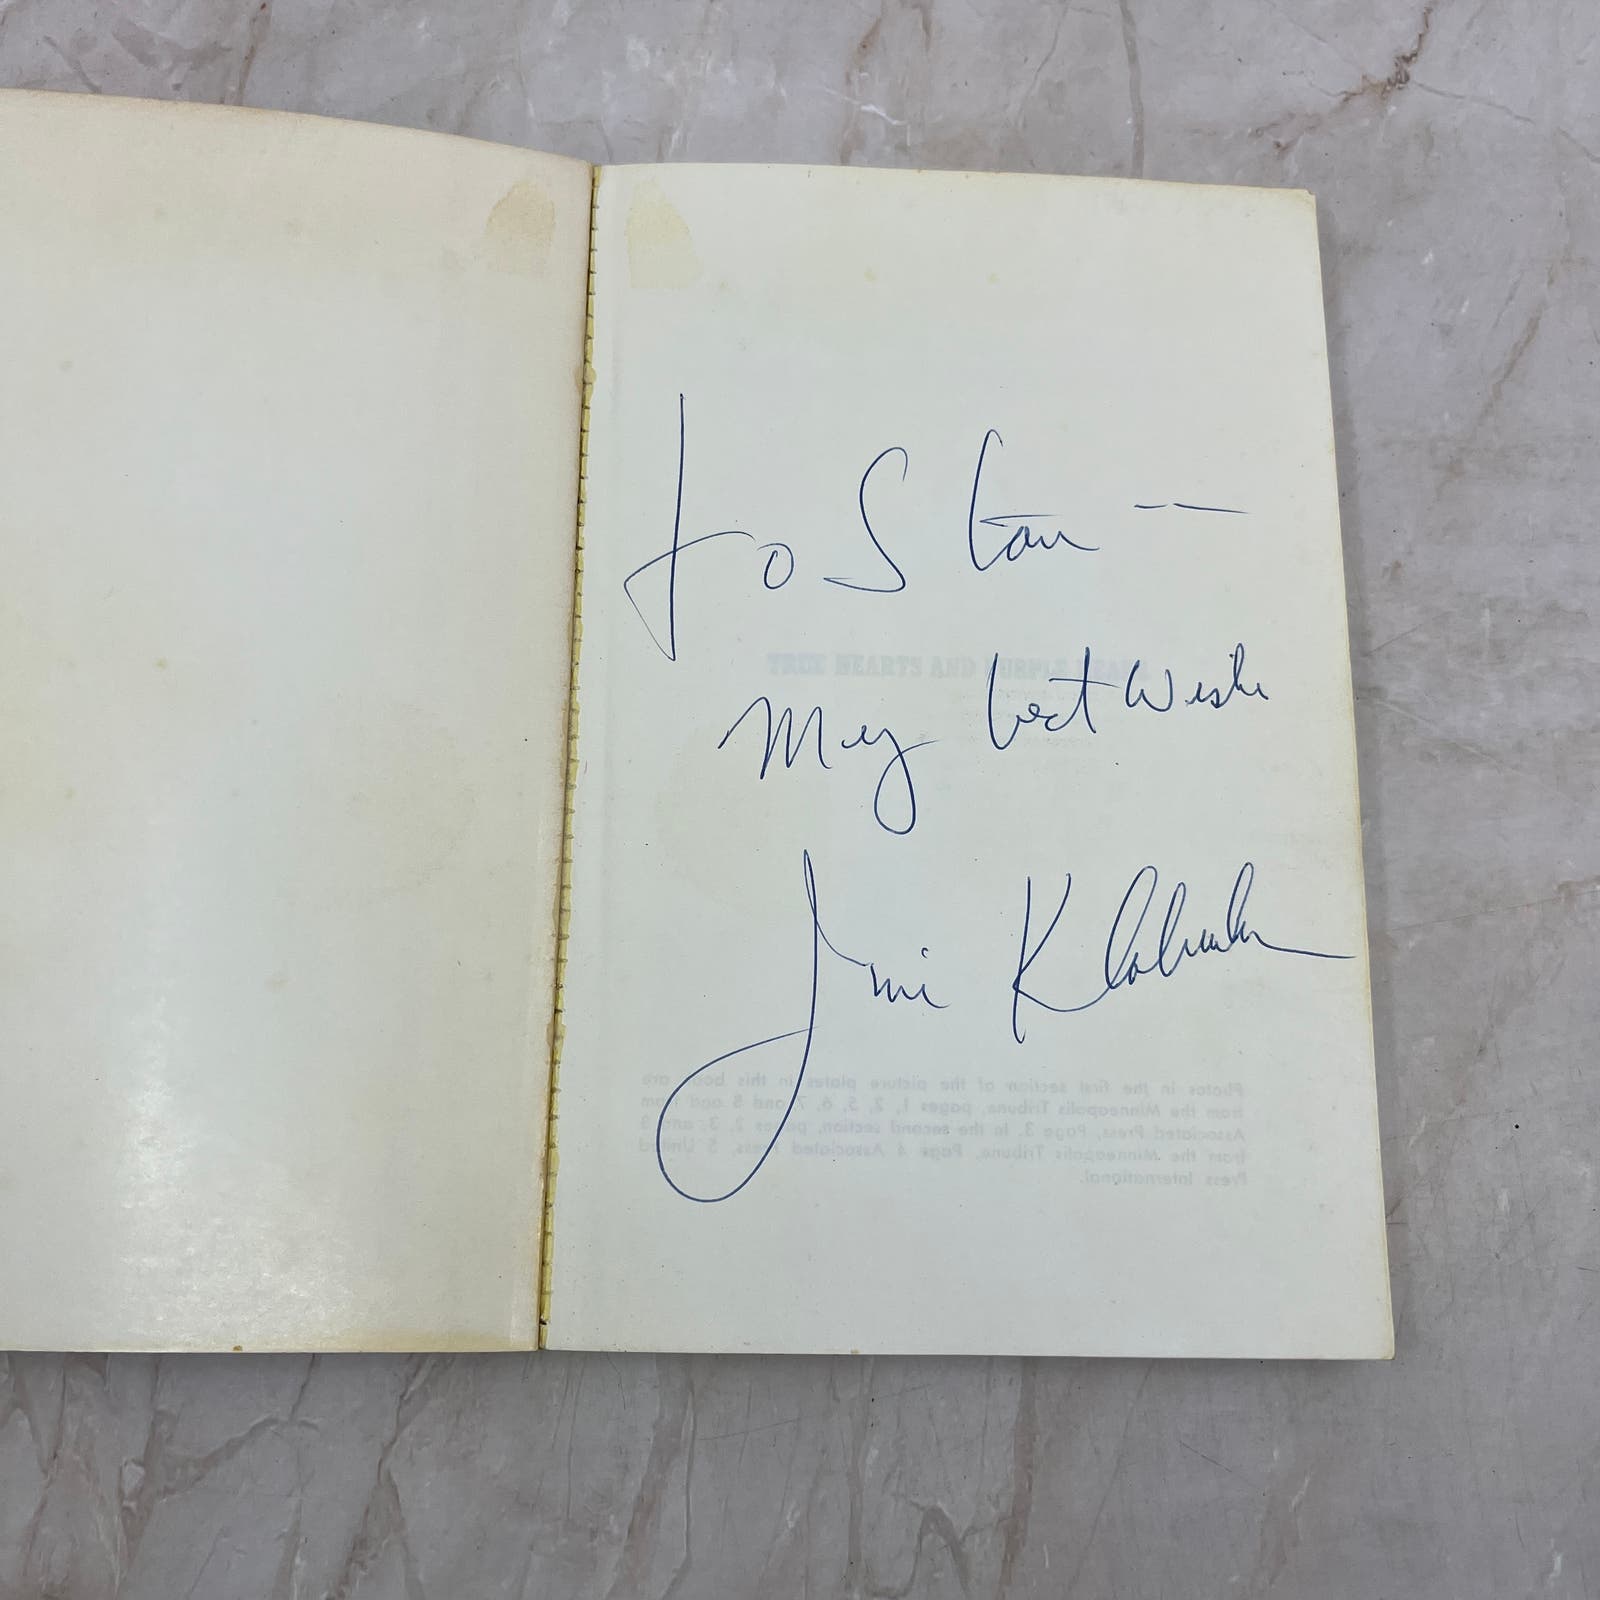 To Stan —
My best wishes
Jim Klobuchar
TRUE HEARTS AND PURPLE HEADS
Photos in the first section of the picture plates in this book are
from the Minneapolis Tribune, pages 1, 2, 5, 6, 7 and 8 and from
Associated Press, Page 3. In the second section, pages 2, 3, and 8
from the Minneapolis Tribune, Page 4 Associated Press, 5 United
Press International.